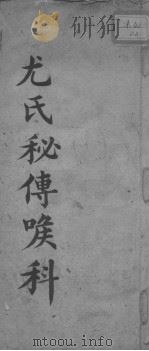 研狗
尤氏秘傳喉科
mtoou.info